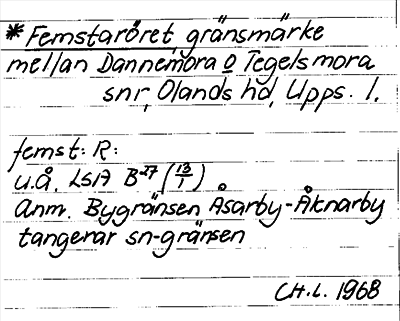 * Femstaröret, gränsmärke
mellan Dannemora o Tegelsmora
snr, Olands hd, Upps. l.
femst: R:
u.å. LSA B27 (13/1)
Anm. Bygränsen Åsarby-Åknarby
tangerar sn-gränsen
CH.L. 1968